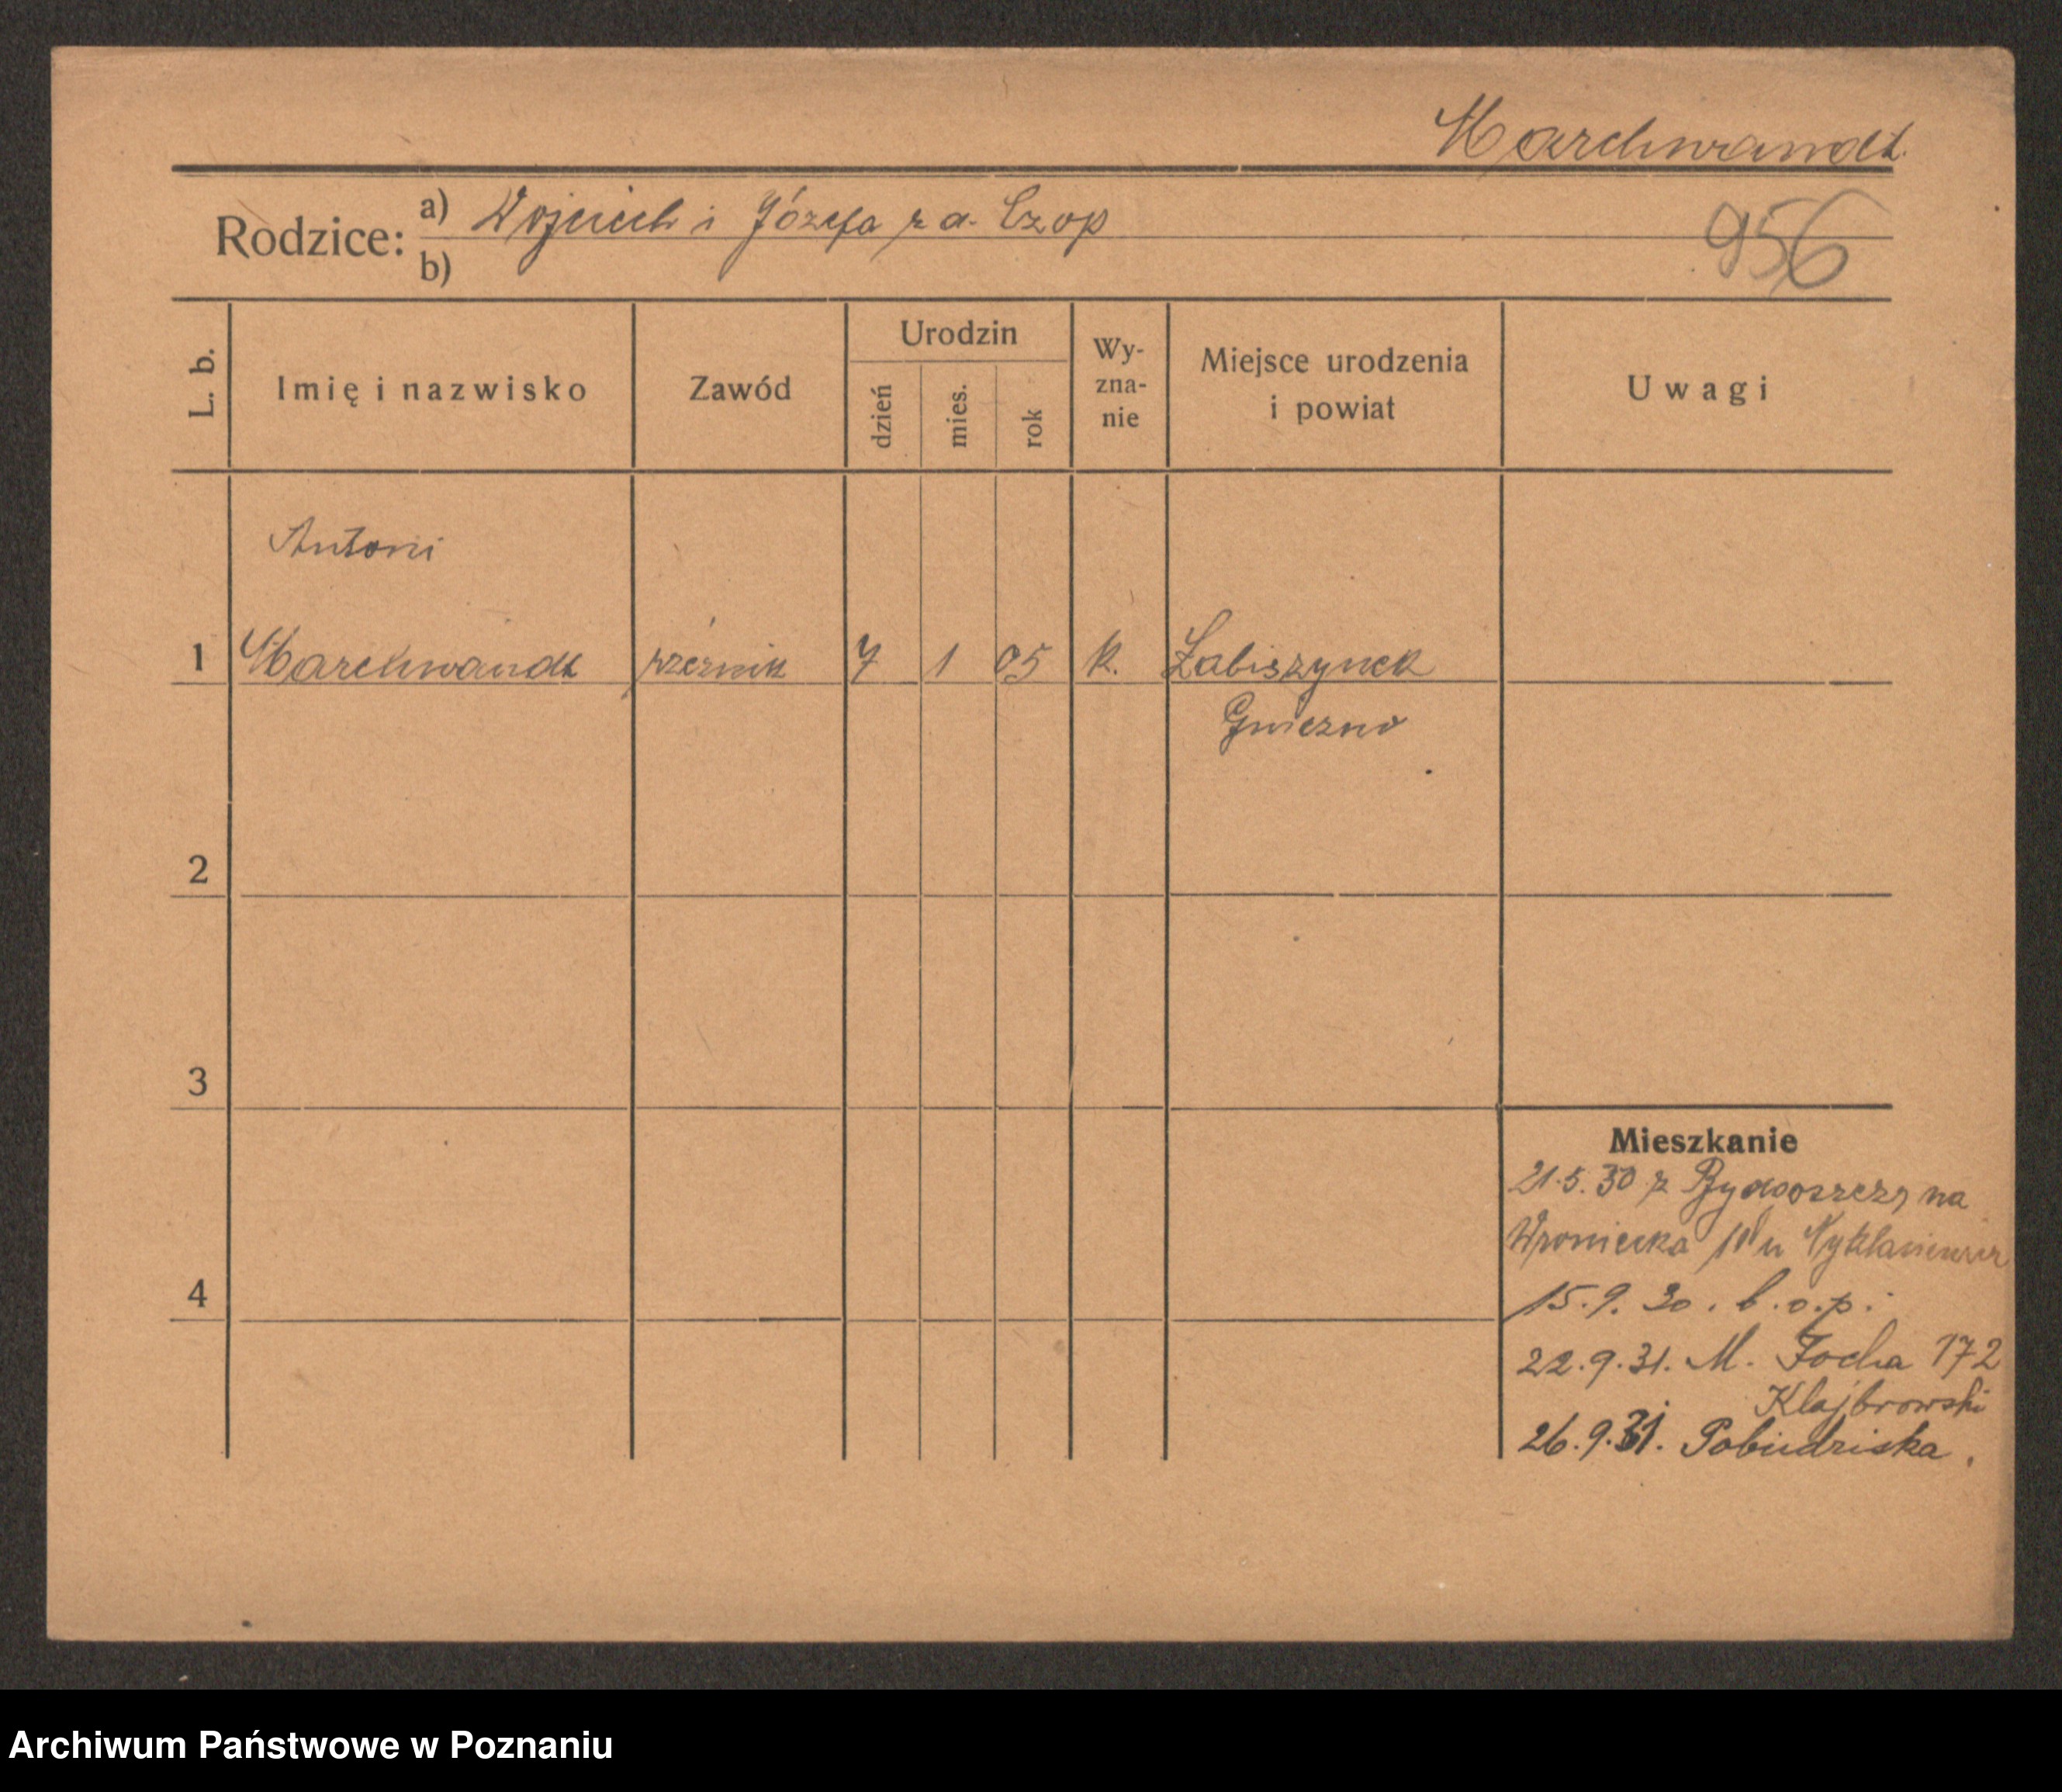 Marchwandt.
Rodzice: a) Wojciech i Józefa z d. Czop
956
b)
L. b. Imię i nazwisko Zawód Urodzin dzień mies. rok Wy-zna-nie Miejsce urodzenia i powiat Uwagi
Antoni
1 Marchwandt rzeźnik 7 1 05 k. Łabiszynek
Gniezno
2
3
Mieszkanie
21.5.30 z Bydgoszczy na
Wroniecka u
4
15.9.30. b.o.p.
22.9.31. M. Focha 172
Klajbrowski
26.9.31. Pobiedziska.
Archiwum Państwowe w Poznaniu